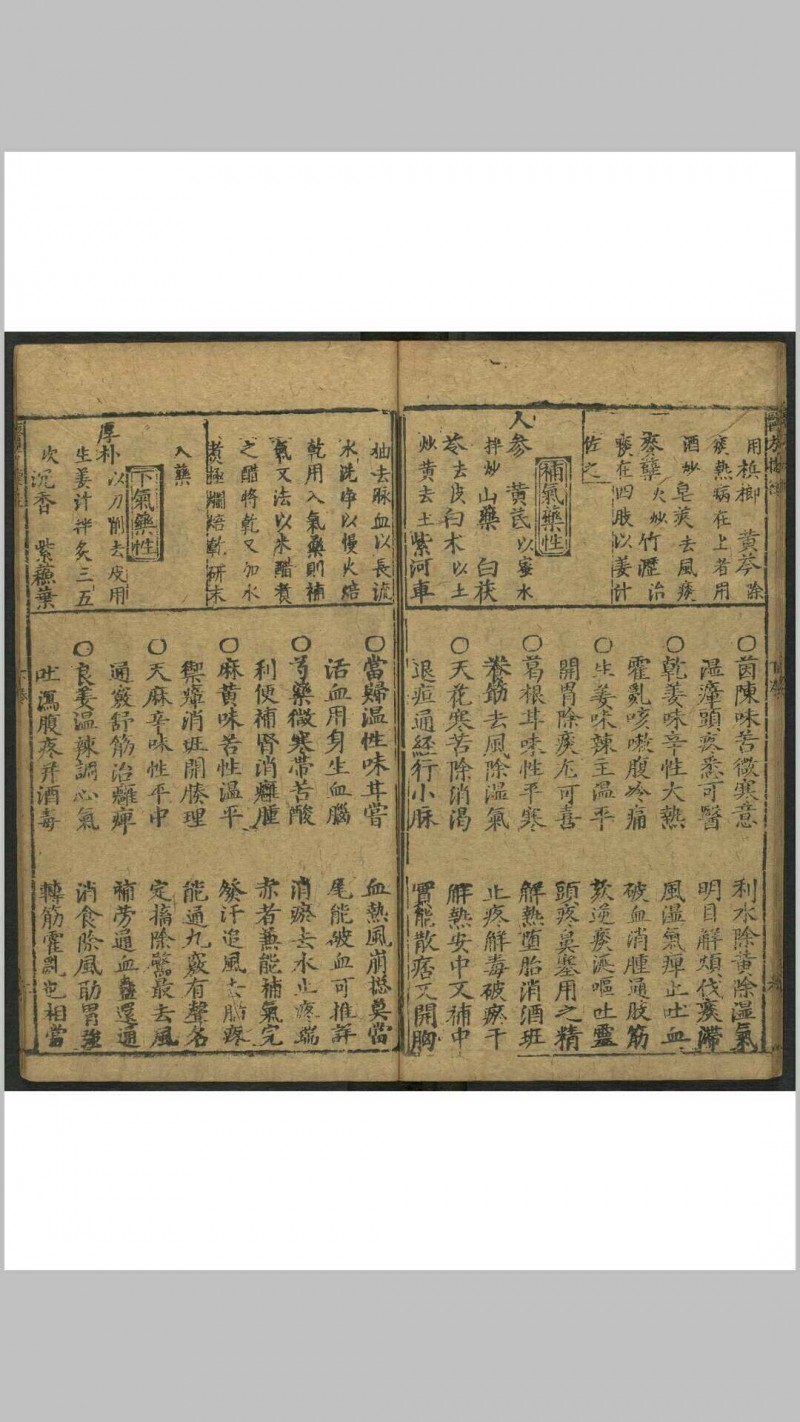 用梹榔 黄芩除
痰熱病在上者用
酒炒皂莢去風痰
麥蘖火炒竹瀝治
痰在四肢以姜汁
佐之
補氣藥性
人參 黄芪以蜜水
拌炒山藥 白茯
苓去皮白朮以土
炒黄去土紫河車
○茵陳味苦微寒意 利水除黄除湿氣
温瘴頭疼悉可醫 明目解煩伐瘕滯
○乾姜味辛性大熱 風湿氣痺止吐血
霍亂咳嗽腹冷痛 破血消腫通肢筋
○生姜味辣主温平 欬逆痰涎嘔吐靈
開胃除痰尤可喜 頭疼鼻塞用之精
○葛根甘味性平寒 解熱堕胎消酒班
養筋去風除湿氣 止疼解毒破瘀干
○天花寒苦除消渴 解熱安中又補中
退疸通經行小脉 實能散痞又開胸
抽去脉血以長流
水洗净以慢火焙
乾用入氣藥則補
氣又法以米醋煮
之醋將乾又加水
煮極爛焙乾研末
入藥
下氣藥性
厚朴以刀削去皮用
生姜汁拌炙三五
次沉香 紫蘇葉
○當歸温性味甘嘗 血熱風崩撼莫當
活血用身生血腦 尾能破血可推詳
○芎藥微寒帶苦酸 消瘀去水止疼端
利便補腎消癰腫 赤者兼能補氣完
○麻黄味苦性温平 發汗追風去腦疼
禦瘴消班開腠理 能通九竅有聲名
○天麻辛味性平中 定搐除驚最去風
通竅舒筋治癱瘓 補勞通血 還通
○良姜温辣調心氣 消食除風助胃強
吐瀉腹疼并酒毒 轉筋霍亂也相當